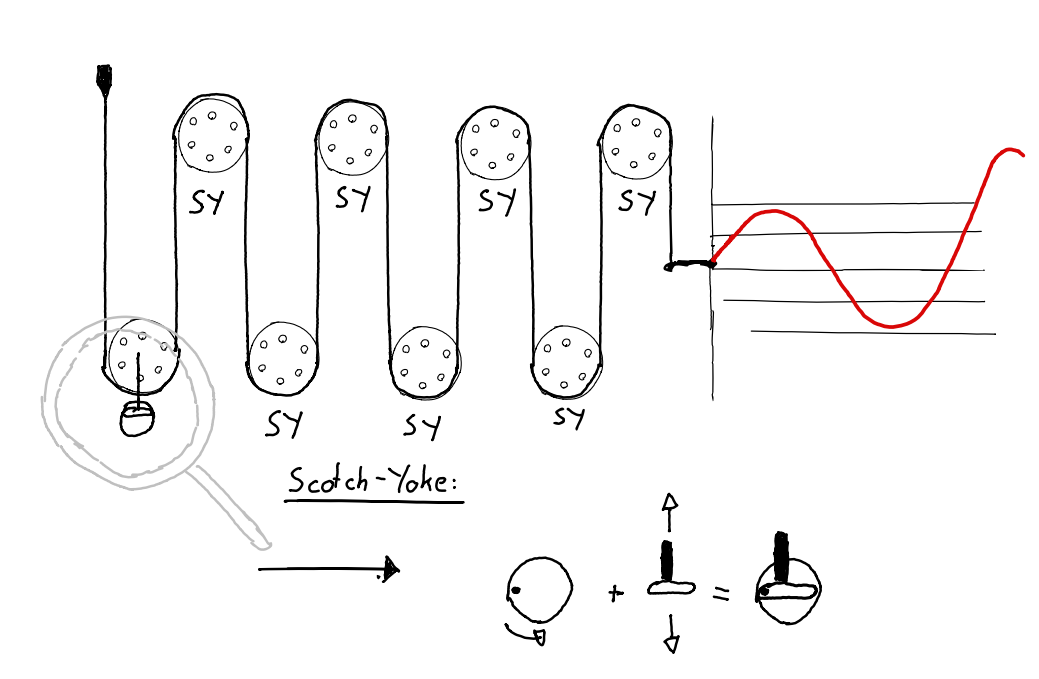 SY SY SY SY
SY SY SY
Scotch-Yoke:
+ =